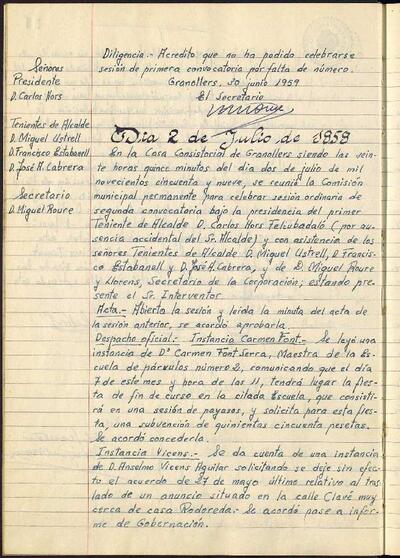 Señores
Presidente
D. Carlos Hors
Tenientes de Alcalde
D. Miguel Ustrell
D. Francisco Estabanell
D. José M. Cabrera
Secretario
D. Miguel Roure
Diligencia.- Acredito que no ha podido celebrarse
sesión de primera convocatoria por falta de número.
Granollers, 30 junio 1959
El Secretario
Dia 2 de Julio de 1959
En la Casa Consistorial de Granollers siendo las vein-
te horas quince minutos del dia dos de julio de mil
novecientos cincuenta y nueve, se reunió la Comisión
municipal permanente para celebrar sesión ordinaria de
segunda convocatoria bajo la presidencia del primer
Teniente de Alcalde D. Carlos Hors Feliubadaló (por au-
sencia accidental del Sr. Alcalde) y con asistencia de los
señores Tenientes de Alcalde D. Miguel Ustrell, D. Francis-
co Estabanell y D. José M. Cabrera, y de D. Miguel Roure
y Llorens, Secretario de la Corporación; estando pre-
sente el Sr. Interventor.
Acta.- Abierta la sesión y leida la minuta del acta de
la sesión anterior, se acordó aprobarla.
Despacho oficial.- Instancia Carmen Font.- Se leyó una
instancia de Dª Carmen Font Serra, Maestra de la Es-
cuela de párvulos número 2, comunicando que el dia
7 de este mes y hora de las 11, tendrá lugar la fies-
ta de fin de curso en la citada Escuela, que consisti-
rá en una sesión de payasos, y solicita para esta fies-
ta, una subvención de quinientas cincuenta pesetas.
Se acordó concederla.
Instancia Vicens.- Se da cuenta de una instancia
de D. Anselmo Vicens Aguilar solicitando se deje sin efec-
to el acuerdo de 27 de mayo último relativo al tras-
lado de un anuncio situado en la calle Clavé muy
cerca de casa Rodoreda: Se acordó pase a infor-
me de Gobernación.